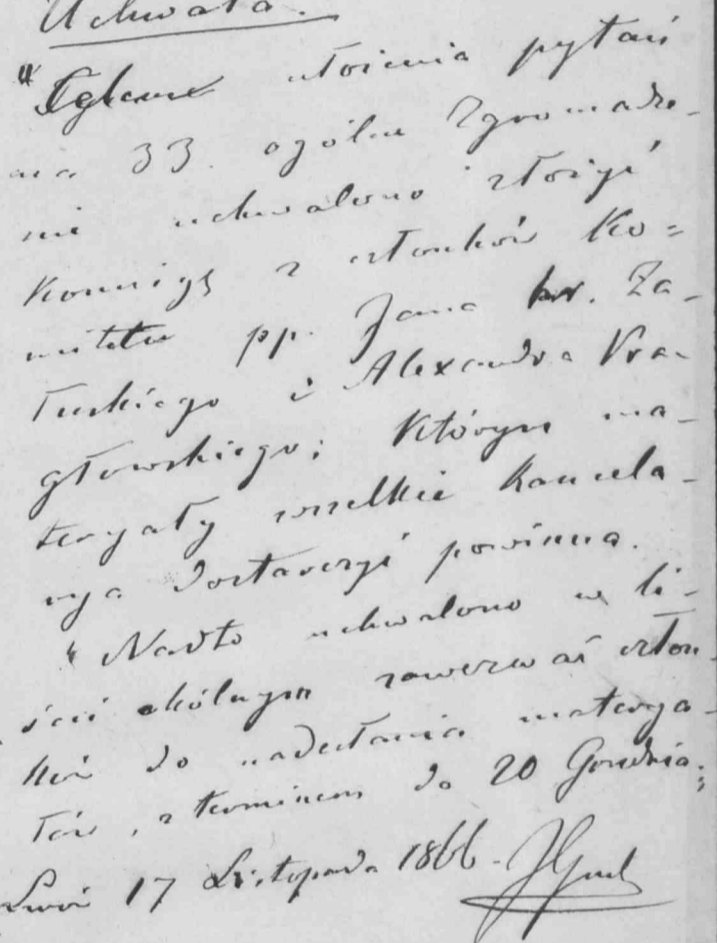 Uchwała.
" ułożenia pytań
na 33. ogólne Zgromadze-
nie uchwalono złożyć
Komisyę z członków Ko=
mitetu pp. Jana hr. Za-
łuskiego i Alexandra Vra-
głowskiego; którym ma-
teryały wszelkie Kancela-
rya dostarczyć powinna.
" Nadto uchwalono w li-
ście okólnym zawezwać człon
ków do nadesłania materya-
łów, z terminem do 20 Grudnia;
Lwów 17 Listopada 1866.